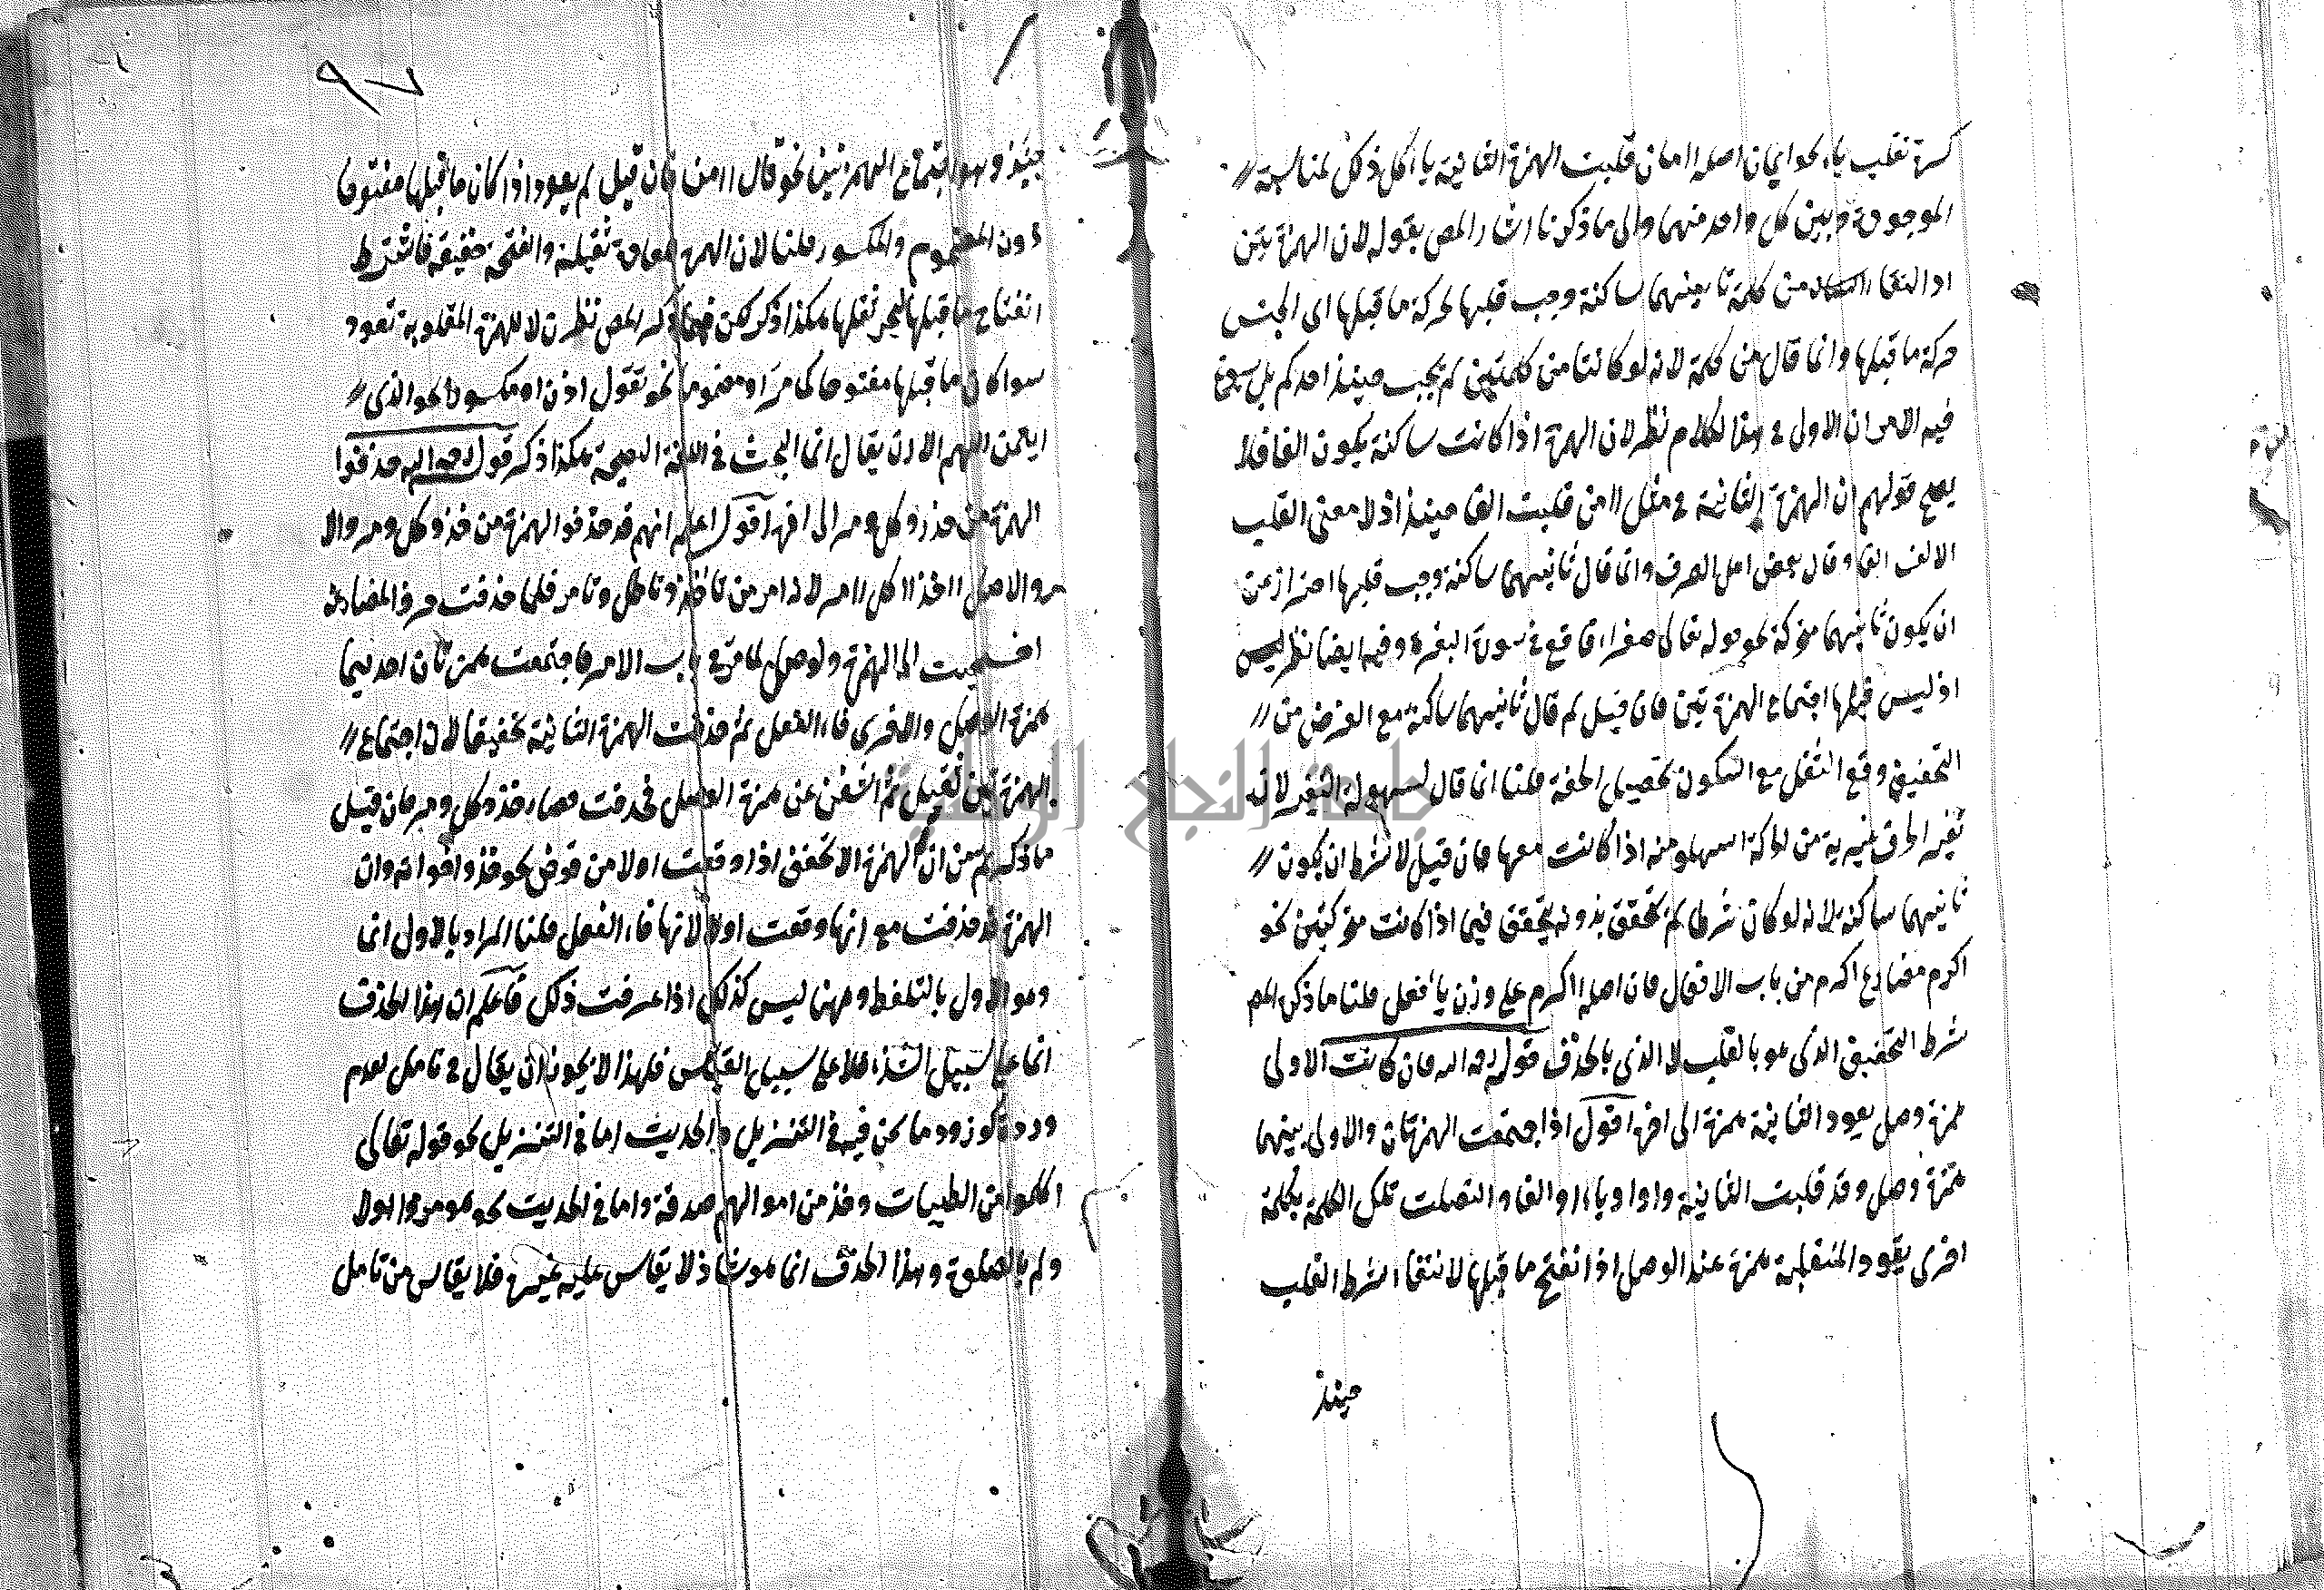 كسرة تقلب ياء نحو ايمان اصله اامان قلبت الهمزة الثانية ياء كل ذلك لمناسبة
الموجودة وبين كل واحد منهما والى ما ذكرنا اشار المص بقوله لان الهمزتين
اذا التقتا من كلمة ثانيتهما ساكنة وجب قلبها لحركة ما قبلها اى الجنس
حركة ما قبلها وانما قال من كلمة لانه لو كانتا من كلمتين لم يجب حينئذ احدكم بل سيوغ
فيه الامران الاول فى هذا الكلام نظر لان الهمزة اذا كانت ساكنة يكون الفا فلا
يصح قولهم ان الهمزة الثانية فى مثل اامن قلبت الفا حينئذ اذ لا معنى القلب
الالف الفا وقال بعض اهل الصرف وانما قال ثانيتهما ساكنة وجب قلبها احتراز عن
ان يكون ثانيهما متحركة نحو قوله تعالى صفراء فاقع فى سورة البقرة وفيه ايضا نظر
اذ ليس فيها اجتماع الهمزتين فان قيل لم قال ثانيتهما ساكنة مع الغرض من
التخفيف وقع الثقل مع السكون تحصيل الخفة قلنا انما قال لسهولة التغير لان
تغير الحرف عريه من الحركة اسهل منه اذا كانت معها فان قيل لا نشرط ان يكون
ثانيهما ساكنة لانه لو كان شرطا لم تتحقق بدونه يتحقق فيما اذا كانت متحركتين نحو
اكرم مضارع اكرم من باب الافعال فان اصله ااكرم على وزن يأفعل قلنا ما ذكره المص
شرط التخفيف الذى هو بالقلب لا الذى بالحذف قوله رحمه الله فان كانت الاولى
همزة وصل يعود الثانية همزة الى اخره اقول اذا اجتمعت الهمزتان والاولى بينهما
همزة وصل وقد قلبت الثانية واوا وياء او الفا واتصلت تلك الكلمة بكلمة
اخرى يعود المنقلبة همزة عند الوصل اذا انفتح ما قبلها لانتفاء شرط القلب
حينئذ
حينئذ وهو اجتماع الهمزتين نحو قال اامن فان قيل لم يعود اذا كان ما قبلها مفتوحا
دون المضموم والمكسور قلنا لان الهمزة المعادة ثقيلة والفتحة خفيفة فاشترط
انفتاح ما قبلها ليجبر ثقلها هكذا ذكر لكن فيما ذكره المص نظر لان الهمزة المقلوبة تعود
سواء كان ما قبلها مفتوحا كما مر او مضموما نحو تقول اذن او مكسورا نحو الذى
ايتمن اللهم الا ان يقال انما البحث فى اللغة الفصيحة هكذا ذكر قوله رحمه الله حذفوا
الهمزة من خذ وكل ومر الى اخره اقول اعلم انهم قد حذفوا الهمزة من خذ وكل ومر والا
مر والاصل ااخذ ااكل اامر لانه امر من تأخذ وتاكل وتامر فلما حذفت حرف المضارعة
احتيجت الى الهمزة ولوصل لما مر فى باب الامر فاجتمعت همزتان احديهما
همزة الوصل والاخرى فاء الفعل ثم حذفت الهمزة الثانية تخفيفا لان اجتماع
الهمزتين ثقيل ثم استغنى عن همزة الوصل فحذفت فصار خذ وكل ومر فان قيل
ما ذكرتم من ان الهمزة لا تخفف اذا وقعت اولا منقوض نحو خذ واخواته وان
الهمزة قد حذفت مع انها وقعت اولا لانها فاء الفعل قلنا المراد بالاول انما
هو الاول بالتلفظ وههنا ليس كذلك اذا عرفت ذلك فاعلم ان هذا الحذف
انما على سبيل الشذوذ لا على سبيل القياس فلهذا لا يجوز ان يقال فى تامل لعدم
وروده كورود ما نحن فيه فى التنزيل والحديث اما فى التنزيل نحو قوله تعالى
كلوا من الطيبات وخذ من اموالهم صدقة واما فى الحديث نحو هو مروا اولا
دكم بالصلوة وهذا الحذف انما هو شاذ لا يقاس عليه غيره فلا يقاس من تامل
جامعة النجاح الوطنية